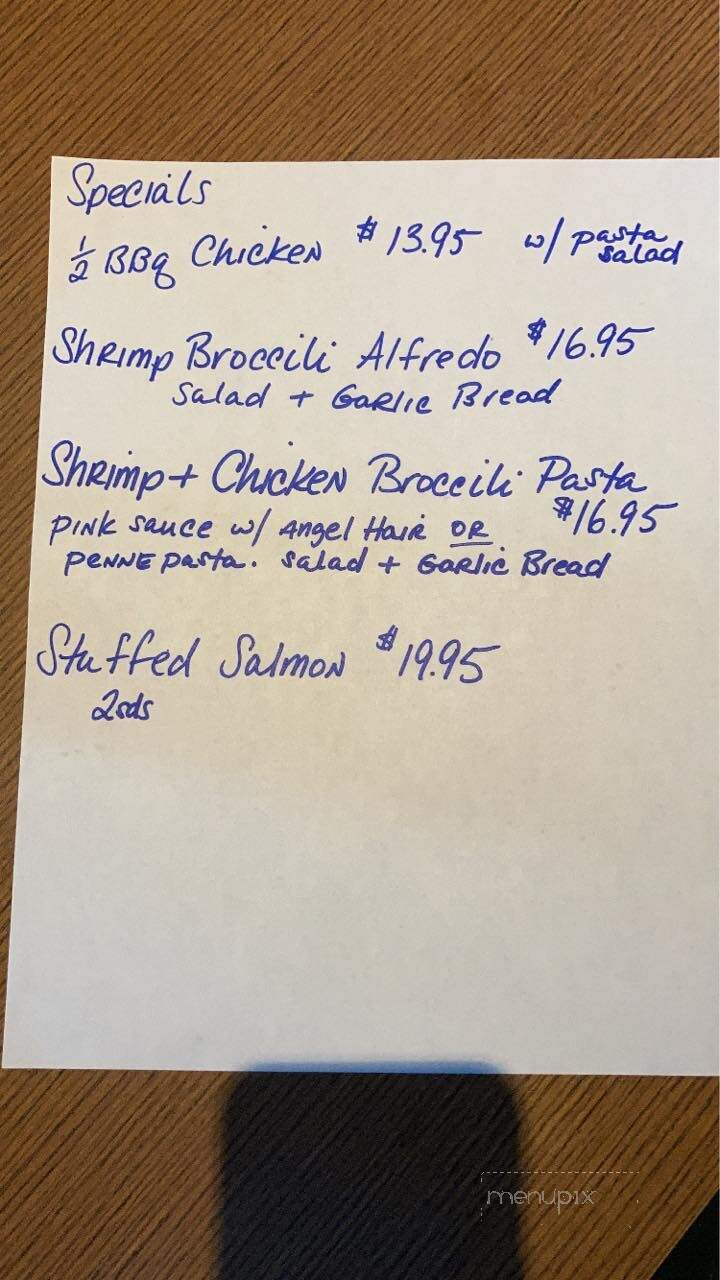 Specials
1/2 BBq Chicken $13.95 w/ pasta salad
Shrimp Broccili Alfredo $16.95
Salad + Garlic Bread
Shrimp + Chicken Broccili Pasta
$16.95
Pink Sauce w/ Angel Hair OR
Penne pasta. Salad + Garlic Bread
Stuffed Salmon $19.95
2sds
menupix